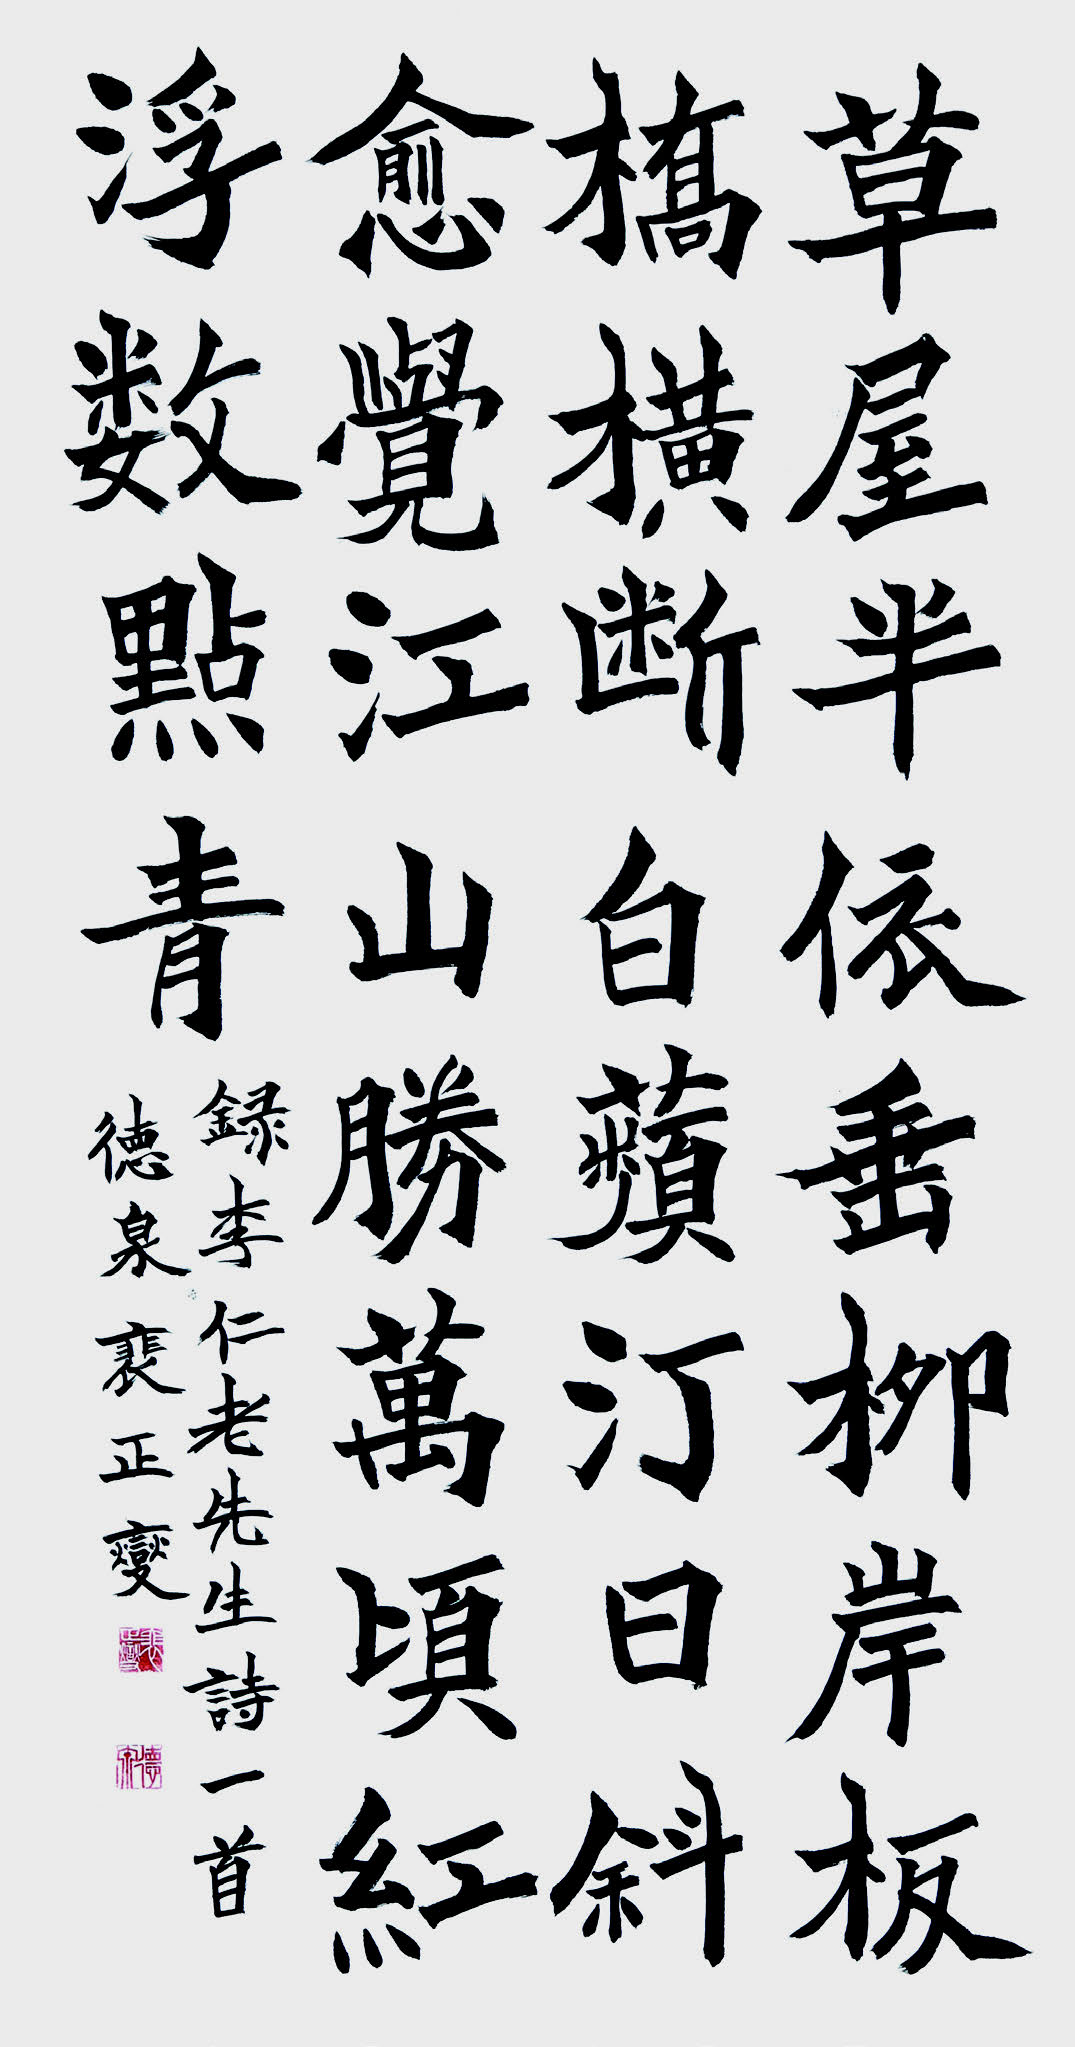 草屋半依垂柳岸板
橋橫断白蘋汀日斜
愈覺江山勝萬頃紅
浮数點青
録李仁老先生詩一首
德泉裵正燮